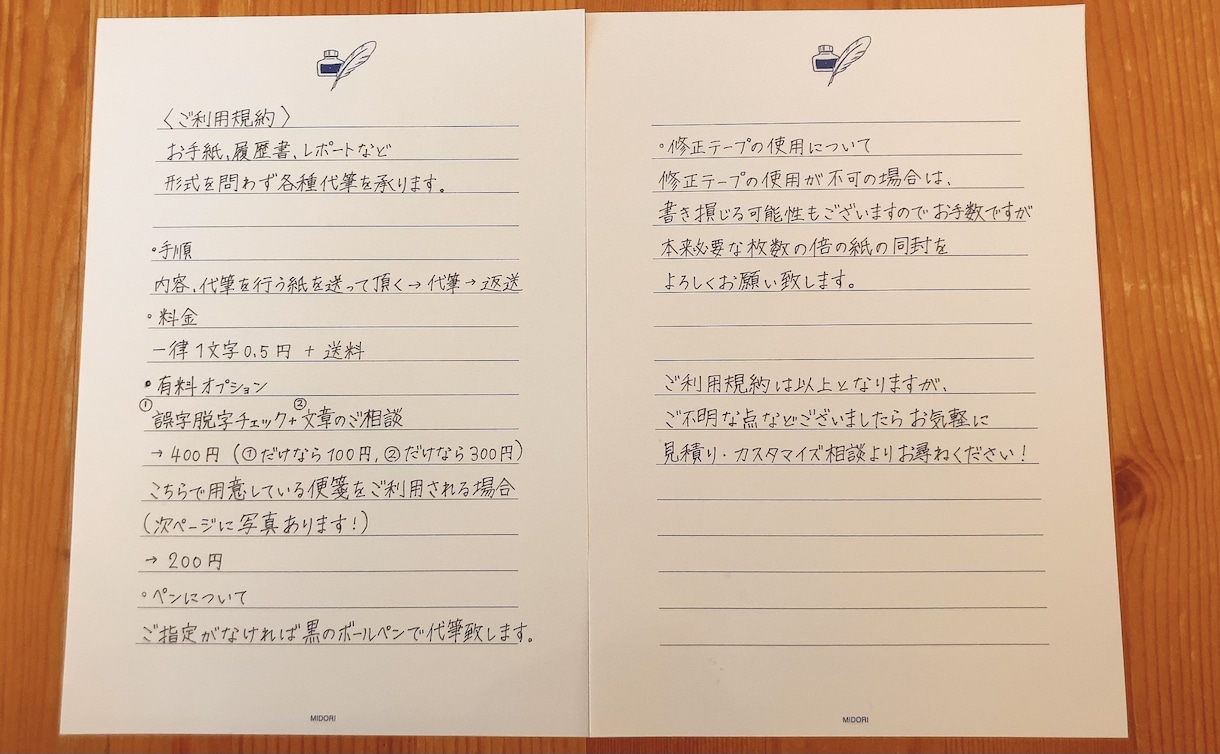 〈ご利用規約〉
お手紙、履歴書、レポートなど
形式を問わず各種代筆を承ります。
・手順
内容、代筆を行う紙を送って頂く→代筆→返送
・料金
一律1文字0.5円 + 送料
・有料オプション
①誤字脱字チェック+②文章のご相談
→400円(①だけなら100円,②だけなら300円)
こちらで用意している便箋をご利用される場合
(次ページに写真あります!)
→200円
・ペンについて
ご指定がなければ黒のボールペンで代筆致します。
MIDORI
・修正テープの使用について
修正テープの使用が不可の場合は、
書き損じる可能性もございますのでお手数ですが
本来必要な枚数の倍の紙の同封を
よろしくお願い致します。
ご利用規約は以上となりますが、
ご不明な点などございましたらお気軽に
見積り・カスタマイズ相談よりお尋ねください!
MIDORI